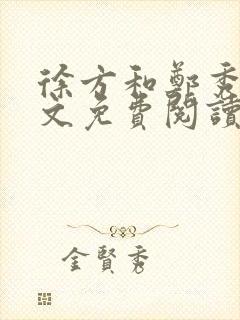 徐方和鄭秀
文免費閱讀
金賢秀